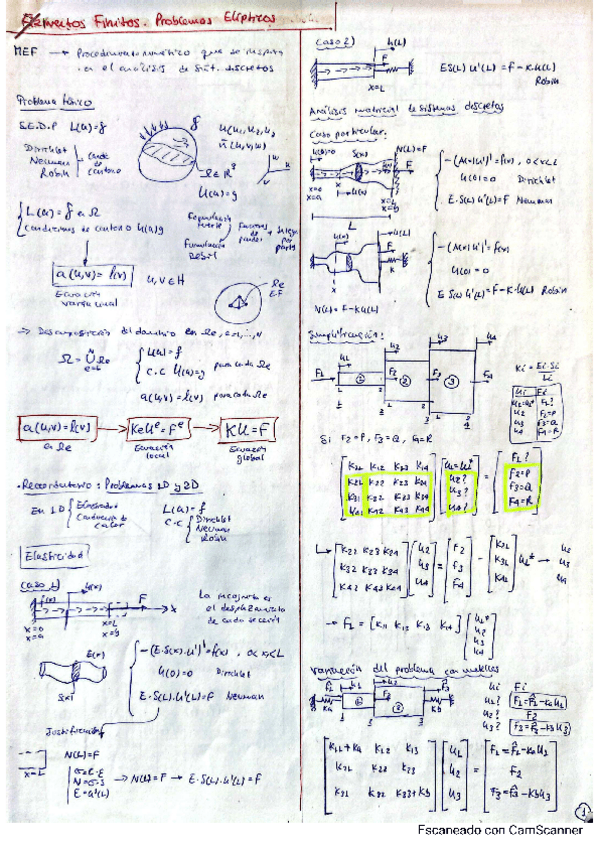 Elementos Finitos. Problemas Elípticos
MEF → Procedimiento numérico que se inspira
en el análisis de sist. discretos
Problema tónico
S.E.D.P L(u)=f
f
u(u₁,u₂,u₃
ū(u,v,w)
Dirichlet
Neuman
Robin
conde
de
contorno
Ωe R³
U(a)=g
L(u)=f en Ω
condiciones de contorno U(a)g
Formulación
fuerte
Formulación
Débil
a(u,v)=l(v)
u,v∈H
Ecuación
variacional
Ωe
E.F
→ Descomposición del dominio en Ωe, e=1,...,N
Ω = U Ωe
L(u)=f
C.C U(a)=g
para cada Ωe
a(u,v)=l(v) para cada Ωe
a(u,v)=l(v) → Ke Uᵉ=Fᵉ → KU=F
en Ωe
Ecuación
local
Ecuación
global
. Recordatorio: Problemas 1D y 2D
En 1D
Elasticidad
Conducción de
calor
L(u)=f
C.C
Dirichlet
Neuman
Robin
Elasticidad
Caso 1)
f(x)
u(x)
F
x
x=0
x=L
La incógnita es
el desplazamiento
de cada sección
E(x)
S(x)
-(E·S(x)·u')'=f(x), 0<x<L
u(0)=0 Dirichlet
E·S(L)·u'(L)=F Neuman
Justificación
x=L
N(L)=F
σ=E·ε
N=σ·S
ε=u'(L)
→ N(L)=F → E·S(L)·u'(L)=F
Caso 2)
u(L)
F
K
x=L
ES(L) u'(L) = F-K u(L)
Robin
Análisis matricial de sistemas discretos
Caso particular:
u(0)=0
S(x)
N(L)=F
x=0
x
u(x)
x=L
L
-(A(x)u')'=f(x), 0<x<L
u(0)=0 Dirichlet
E·S(L) u'(L)=F Neuman
u(0)=0
u(L)
F
K
x
N(L)=F-Ku(L)
-(A(x)u')'=f(x)
u(0)=0
E S(L) u'(L)=F-K·u(L) Robin
Simplificación:
u₁
u₂
u₃
u₄
F₁
①
F₂
②
F₃
③
F₄
1
2
3
4
Ki = Ei·Si / Li
Ui Fi
u₁=u₁* F₁?
u₂ F₂=P
u₃ F₃=Q
u₄ F₄=R
Si F₂=P, F₃=Q, F₄=R
K₁₁ K₁₂ K₁₃ K₁₄ u₁=u₁* F₁?
K₂₁ K₂₂ K₂₃ K₂₄ u₂? F₂=P
K₃₁ K₃₂ K₃₃ K₃₄ u₃? = F₃=Q
K₄₁ K₄₂ K₄₃ K₄₄ u₄? F₄=R
K₂₂ K₂₃ K₂₄ u₂ F₂ K₂₁ u₂
K₃₂ K₃₃ K₃₄ u₃ = F₃ - K₃₁ u₁* → u₃
K₄₂ K₄₃ K₄₄ u₄ F₄ K₄₁ u₄
→ F₁ = [K₁₁ K₁₂ K₁₃ K₁₄] u₁* u₂ u₃ u₄
Variación del problema con muelles
F̂₁
u₁
u₂
F̂₃
Ka
①
②
Kb
1
2
3
ui Fi
u₁? F₁=F̂₁-Ka u₁
u₂? F₂
u₃? F₃=F̂₃-Kb u₃
K₁₁+Ka K₁₂ K₁₃ u₁ F₁=F̂₁-Ka u₁
K₂₁ K₂₂ K₂₃ u₂ = F₂
K₃₁ K₃₂ K₃₃+Kb u₃ F₃=F̂₃-Kb u₃
1
Escaneado con CamScanner